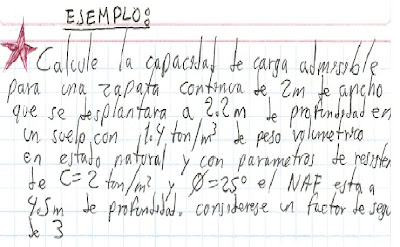 EJEMPLO:
Calcule la capacidad de carga admisible
para una zapata continua de 2m de ancho
que se desplantara a 2.2m de profundidad en
un suelo con 1.4 ton/m³ de peso volumetrico
en estado natural y con parametros de resisten
de C=2 ton/m² y Ø=25° el NAF esta a
4.5m de profundidad. considerese un factor de segu
de 3